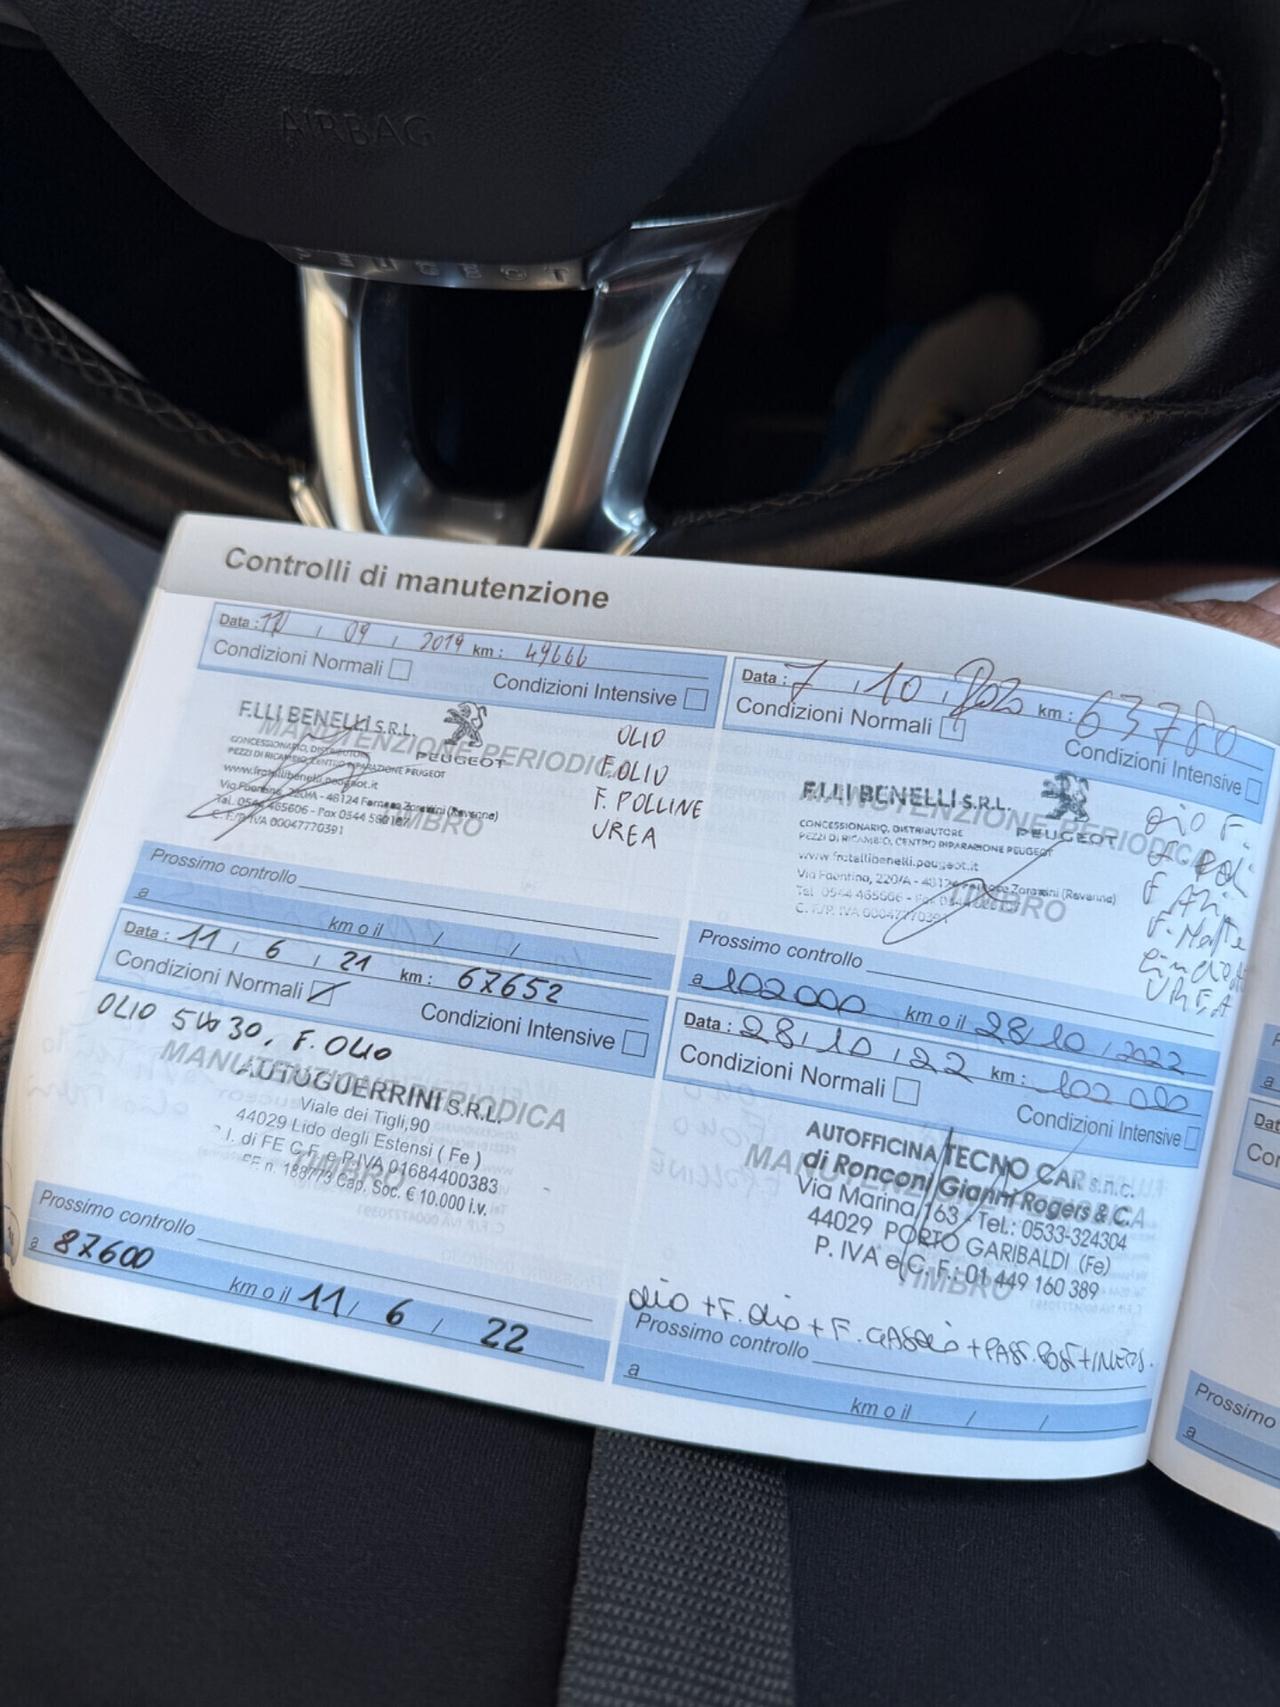 AIRBAG
PEUGEOT
Controlli di manutenzione
Data : , 09 , 2019 km : 49666
Condizioni Normali
Condizioni Intensive
MANUTENZIONE PERIODICA
TIMBRO
F.LLI BENELLI S.R.L.
PEUGEOT
CONCESSIONARIO, DISTRIBUTORE
PEZZI DI RICAMBIO, CENTRO RIPARAZIONE PEUGEOT
www.fratellibenelli.peugeot.it
Via Faentina, 220/A - 48124 Fornace Zarattini (Ravenna)
Tel. 0544 465606 - Fax 0544
C. F./P. IVA 00047770391
OLIO
F.OLIO
F. POLLINE
UREA
Prossimo controllo
a km o il / /
Data : 7 , 10 , 2020 km : 63780
Condizioni Normali
Condizioni Intensive
MANUTENZIONE PERIODICA
TIMBRO
F.LLI BENELLI S.R.L.
PEUGEOT
CONCESSIONARIO, DISTRIBUTORE
PEZZI DI RICAMBIO, CENTRO RIPARAZIONE PEUGEOT
www.fratellibenelli.peugeot.it
Via Faentina, 220/A - 48124 Fornace Zarattini (Ravenna)
Tel. 0544 465606 - Fax 0544
C. F./P. IVA 00047770391
UREA
Prossimo controllo
a 102000 km o il 28/10/2022
Data : 11 , 6 , 21 km : 67652
Condizioni Normali
Condizioni Intensive
OLIO 5W30, F. OLIO
MANUTENZIONE PERIODICA
TIMBRO
AUTOGUERRINI S.R.L.
Viale dei Tigli,90
44029 Lido degli Estensi ( Fe )
.I. di FE C.F. e P.IVA 01684400383
FE n. 188773 Cap. Soc. € 10.000 i.v.
Prossimo controllo
a 87600 km o il 11 / 6 / 22
Data : 28 , 10 , 22 km : 102000
Condizioni Normali
Condizioni Intensive
MANUTENZIONE PERIODICA
TIMBRO
AUTOFFICINA TECNO CAR s.n.c.
di Ronconi Gianni Rogers & C.
Via Marina, 163 - Tel.: 0533-324304
44029 PORTO GARIBALDI (Fe)
P. IVA e C. F.: 01 449 160 389
OLIO + F. OLIO + F. GASOLIO + PAST. POST +
Prossimo controllo
a km o il / /
Prossimo
a